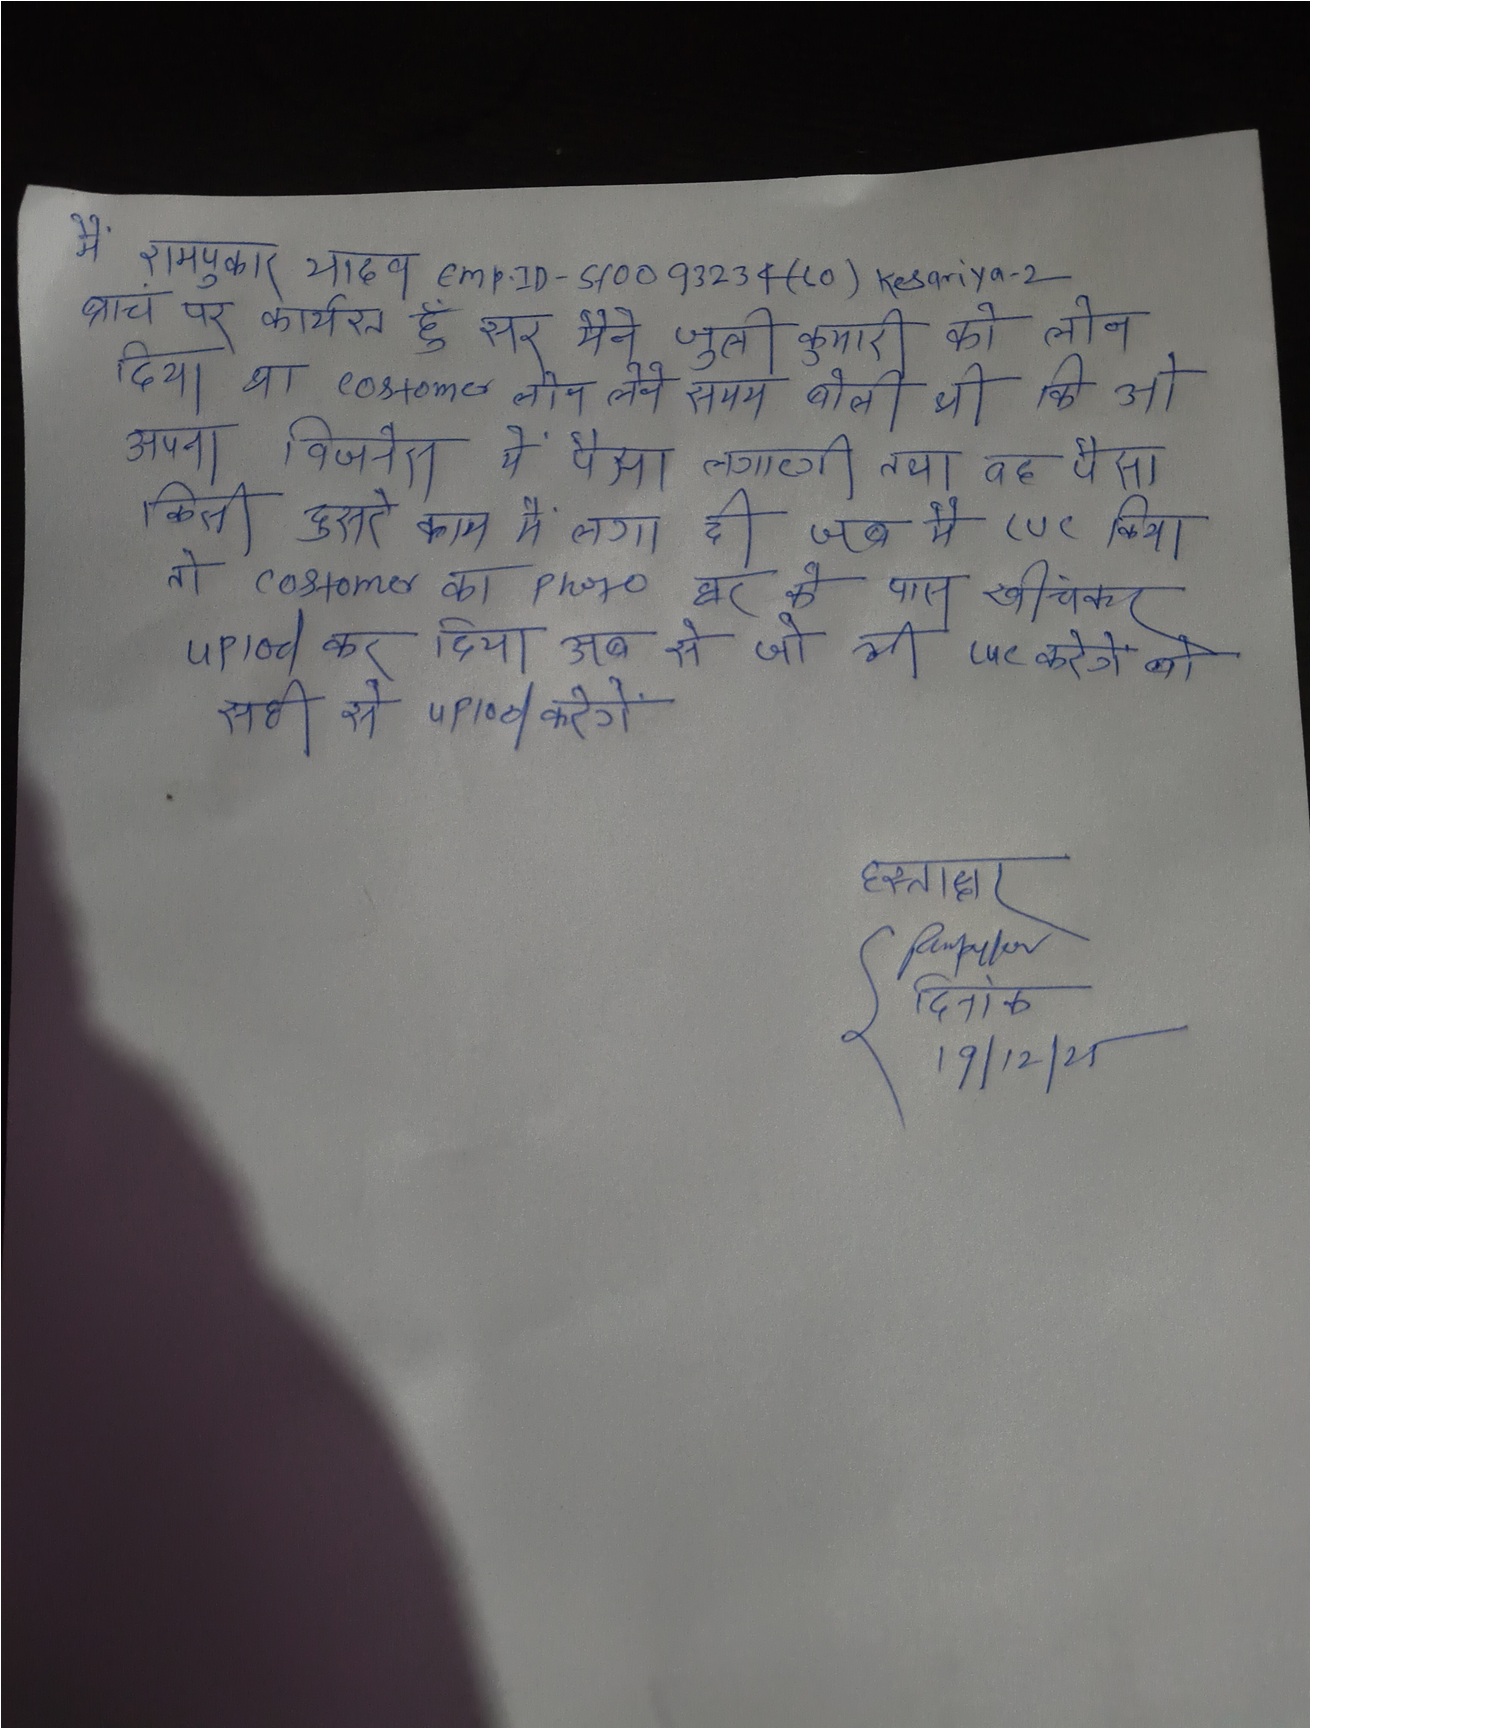 मैं रामपुकार यादव Emp.ID - SF0093234 (LO) Kesariya-2
ब्राचं पर कार्यरत हुँ सर मैने जुली कुमारी को लोन
दिया था costomer लोन लेने समय बोली थी कि ओ
अपना विजनेस में पैसा लगाएगी तथा वह पैसा
किसी दुसरे काम में लगा दी जब मै LUC किया
तो costomer का Photo घर के पास खीचंकर
uplod कर दिया अब से जो भी LUC करेगें वो
सही से uplod करेगें
हस्ताक्षर
दिनांक
19/12/25